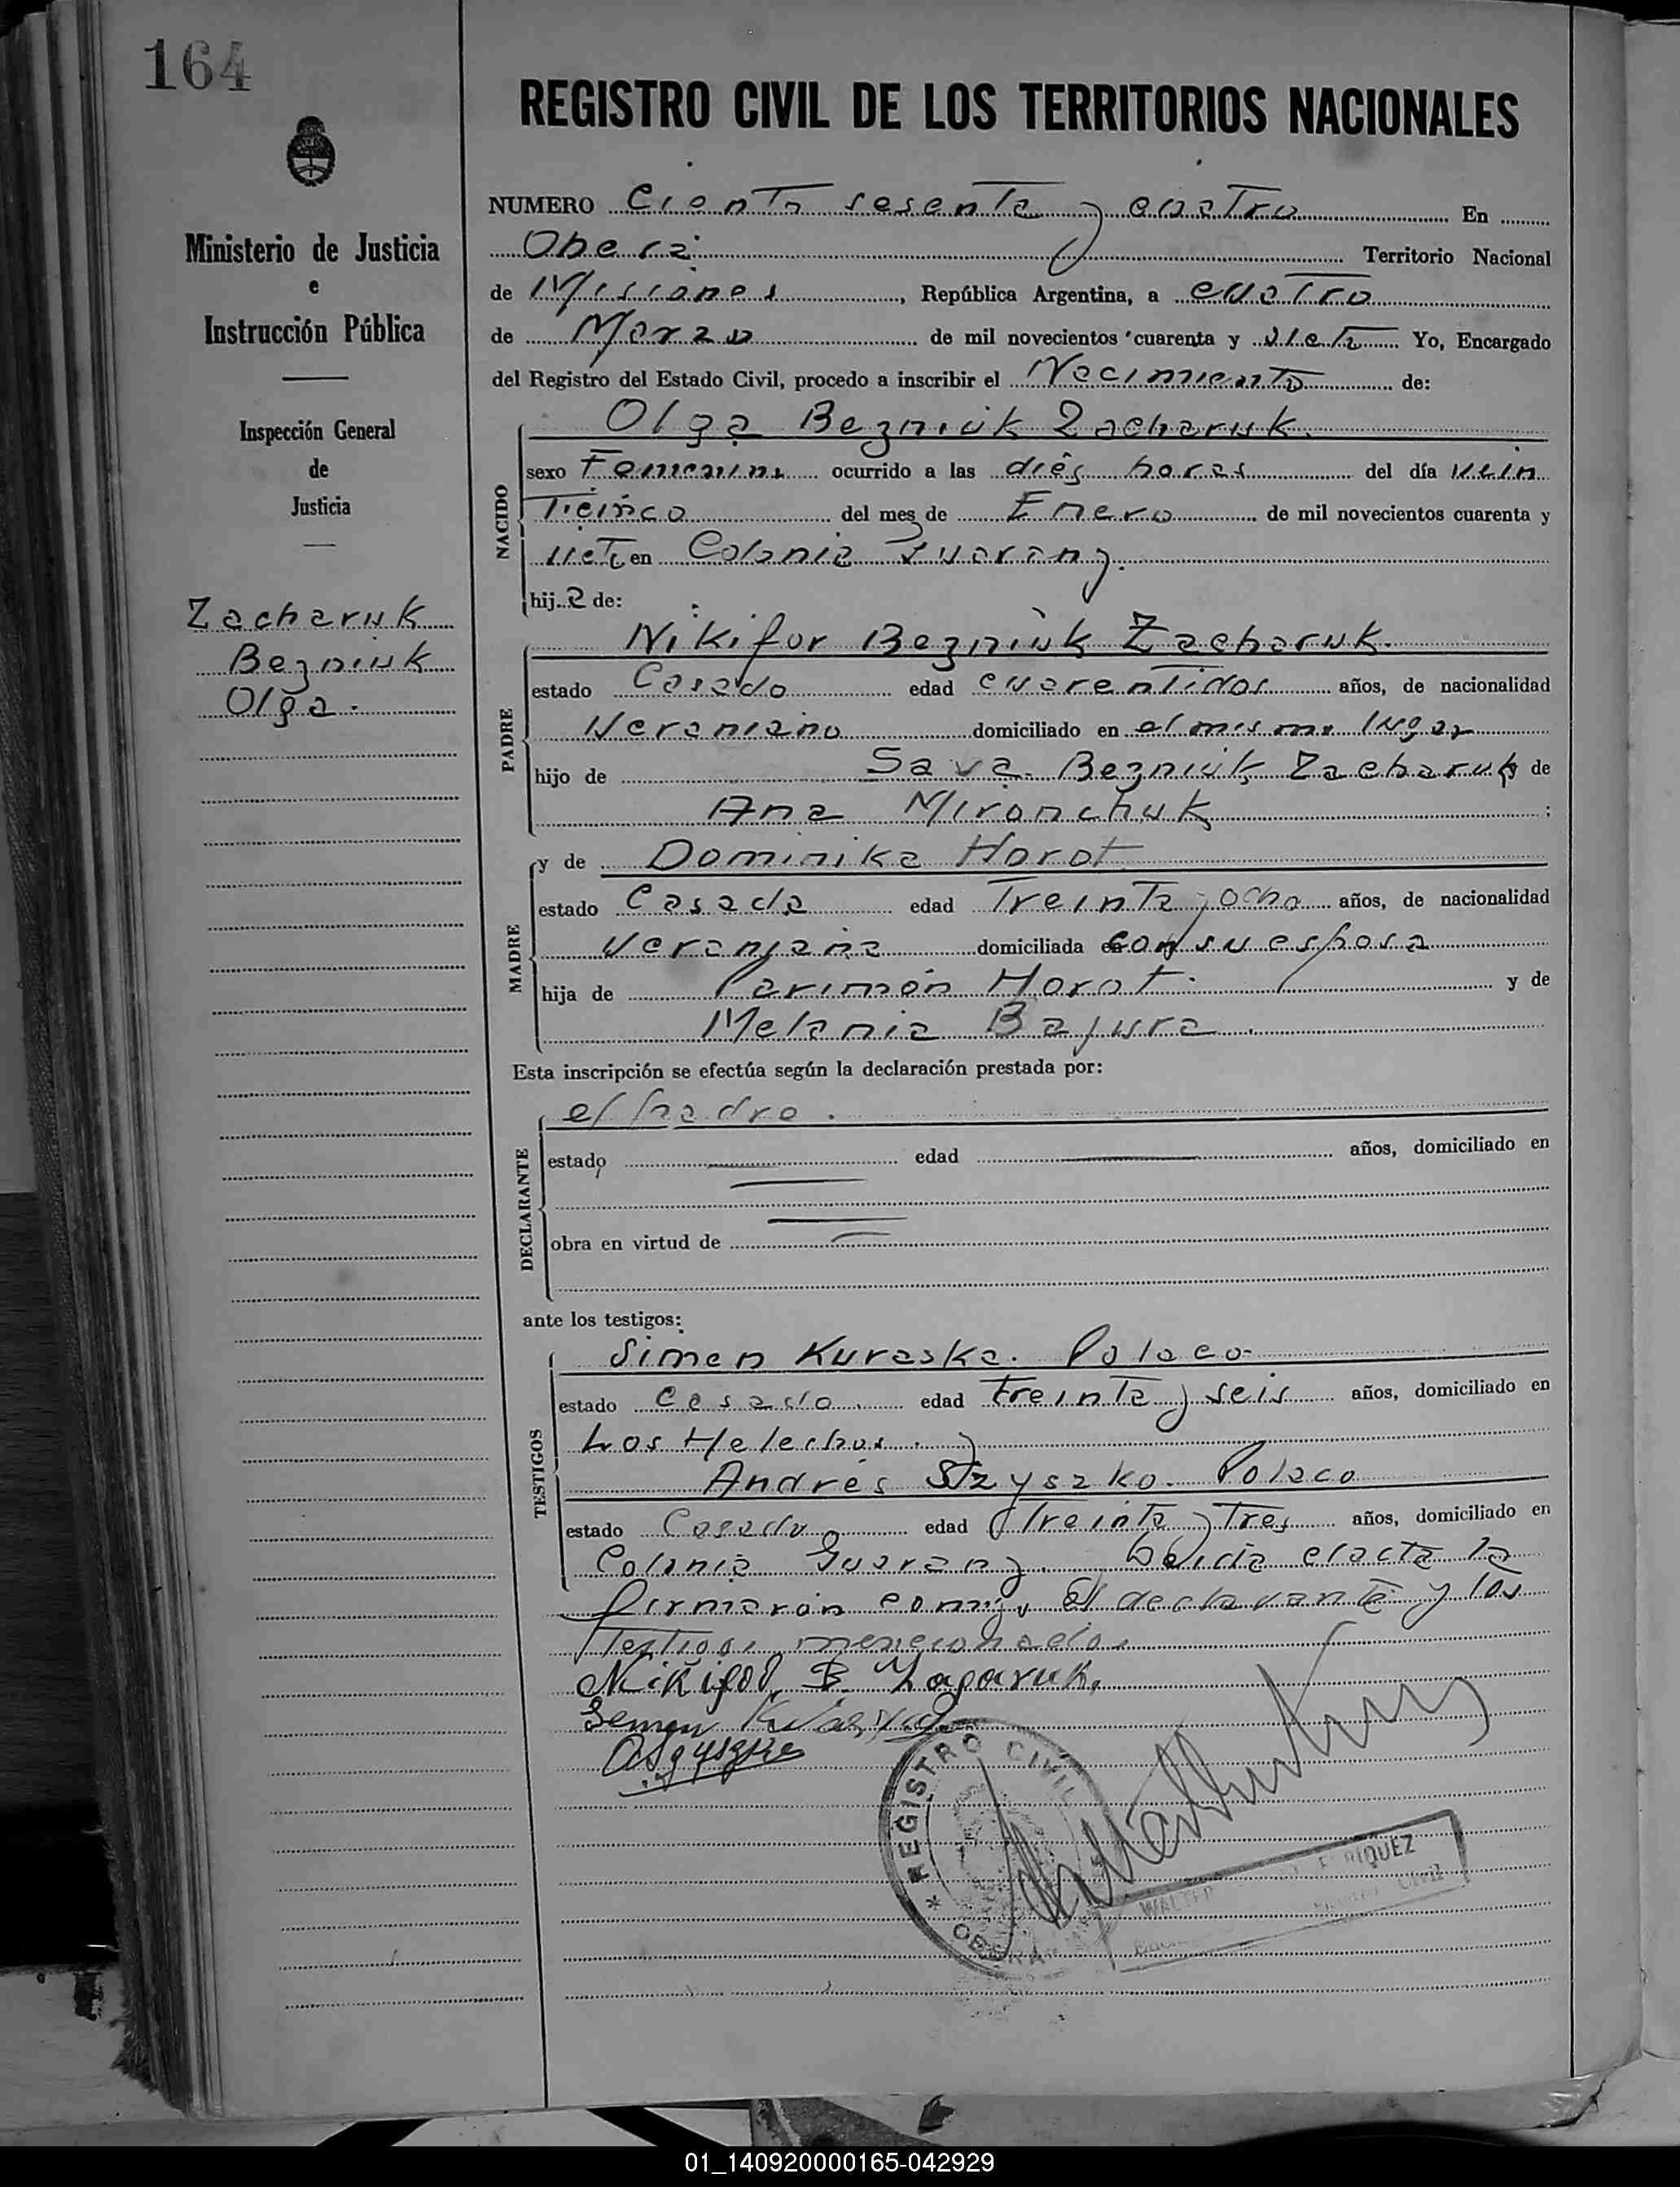 164
REGISTRO CIVIL DE LOS TERRITORIOS NACIONALES
Ministerio de Justicia
e
Instrucción Pública
Inspección General
de
Justicia
Zacharuk
Bezniuk
Olga.
NUMERO Ciento sesenta y cuatro En
Oberá Territorio Nacional
de Misiones, República Argentina, a cuatro
de Marzo de mil novecientos cuarenta y siete Yo, Encargado
del Registro del Estado Civil, procedo a inscribir el Nacimiento de:
NACIDO
Olga Bezniuk Zacharuk.
sexo Femenino ocurrido a las diés horas del día vein
ticinco del mes de Enero de mil novecientos cuarenta y
siete en Colonia Guarany.
hija de:
PADRE
Nikifor Bezniuk Zacharuk.
estado Casado edad cuarentidos años, de nacionalidad
Ucraniano domiciliado en el mismo lugar
hijo de Sava Bezniuk Zacharuk y de
Ana Mironchuk ;
MADRE
y de Dominika Horot
estado Casada edad Treinta y ocho años, de nacionalidad
Ucranjana domiciliada con su esposo
hija de Parimón Horot y de
Melania Bajura.
Esta inscripción se efectúa según la declaración prestada por:
DECLARANTE
el padre.
estado edad años, domiciliado en
obra en virtud de
ante los testigos:
TESTIGOS
Simen Kuraska. Polaco
estado Casado edad treinta y seis años, domiciliado en
Los Helechos. y
Andrés Szyszko. Polaco
estado Casado edad treinta y tres años, domiciliado en
Colonia Guarany. Leída el acta la
firmaron conmigo el declarante y los
Testigos mencionados
Nikifor B. Zaparuk.
Semen
REGISTRO CIVIL
OBERA
WALTER ENRIQUEZ
Civil
01_140920000165-042929